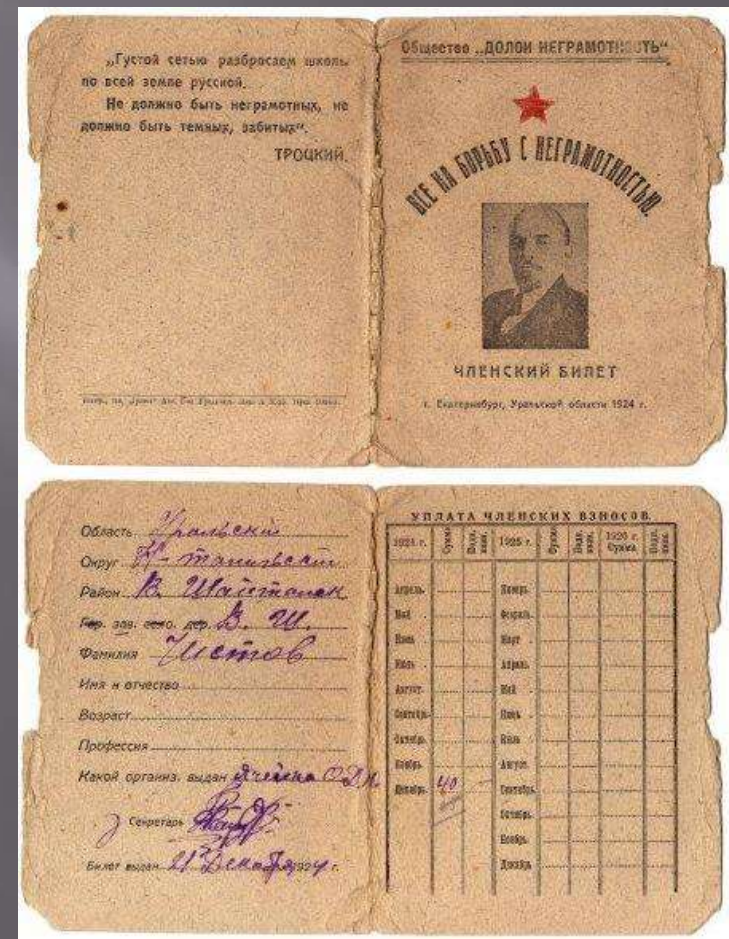 „Густой сетью разбросаем школы
по всей земле русской.
Не должно быть неграмотных, не
должно быть темных, забитых“.
ТРОЦКИЙ.
Общество „ДОЛОЙ НЕГРАМОТНОСТЬ“
ВСЕ НА БОРЬБУ С НЕГРАМОТНОСТЬЮ.
ЧЛЕНСКИЙ БИЛЕТ
г. Екатеринбург, Уральской области 1924 г.
Область Уральский
Округ
Район В.
Гор. зав. село. дер. В. Ш.
Фамилия Чистов
Имя и отчество
Возраст
Профессия
Какой организ. выдан Ячейка О.Д.Н.
Секретарь
Билет выдан 21 Декабря 1924 г.
УПЛАТА ЧЛЕНСКИХ ВЗНОСОВ.
1924 г. Сумма 1925 г. Сумма 1926 г. Сумма
Апрель. Январь.
Май Февраль.
Июнь Март
Июль Апрель.
Август. Май
Сентябрь Июнь
Октябрь. Июль
Ноябрь. Август.
Декабрь. 40 Сентябрь.
Октябрь.
Ноябрь.
Декабрь.